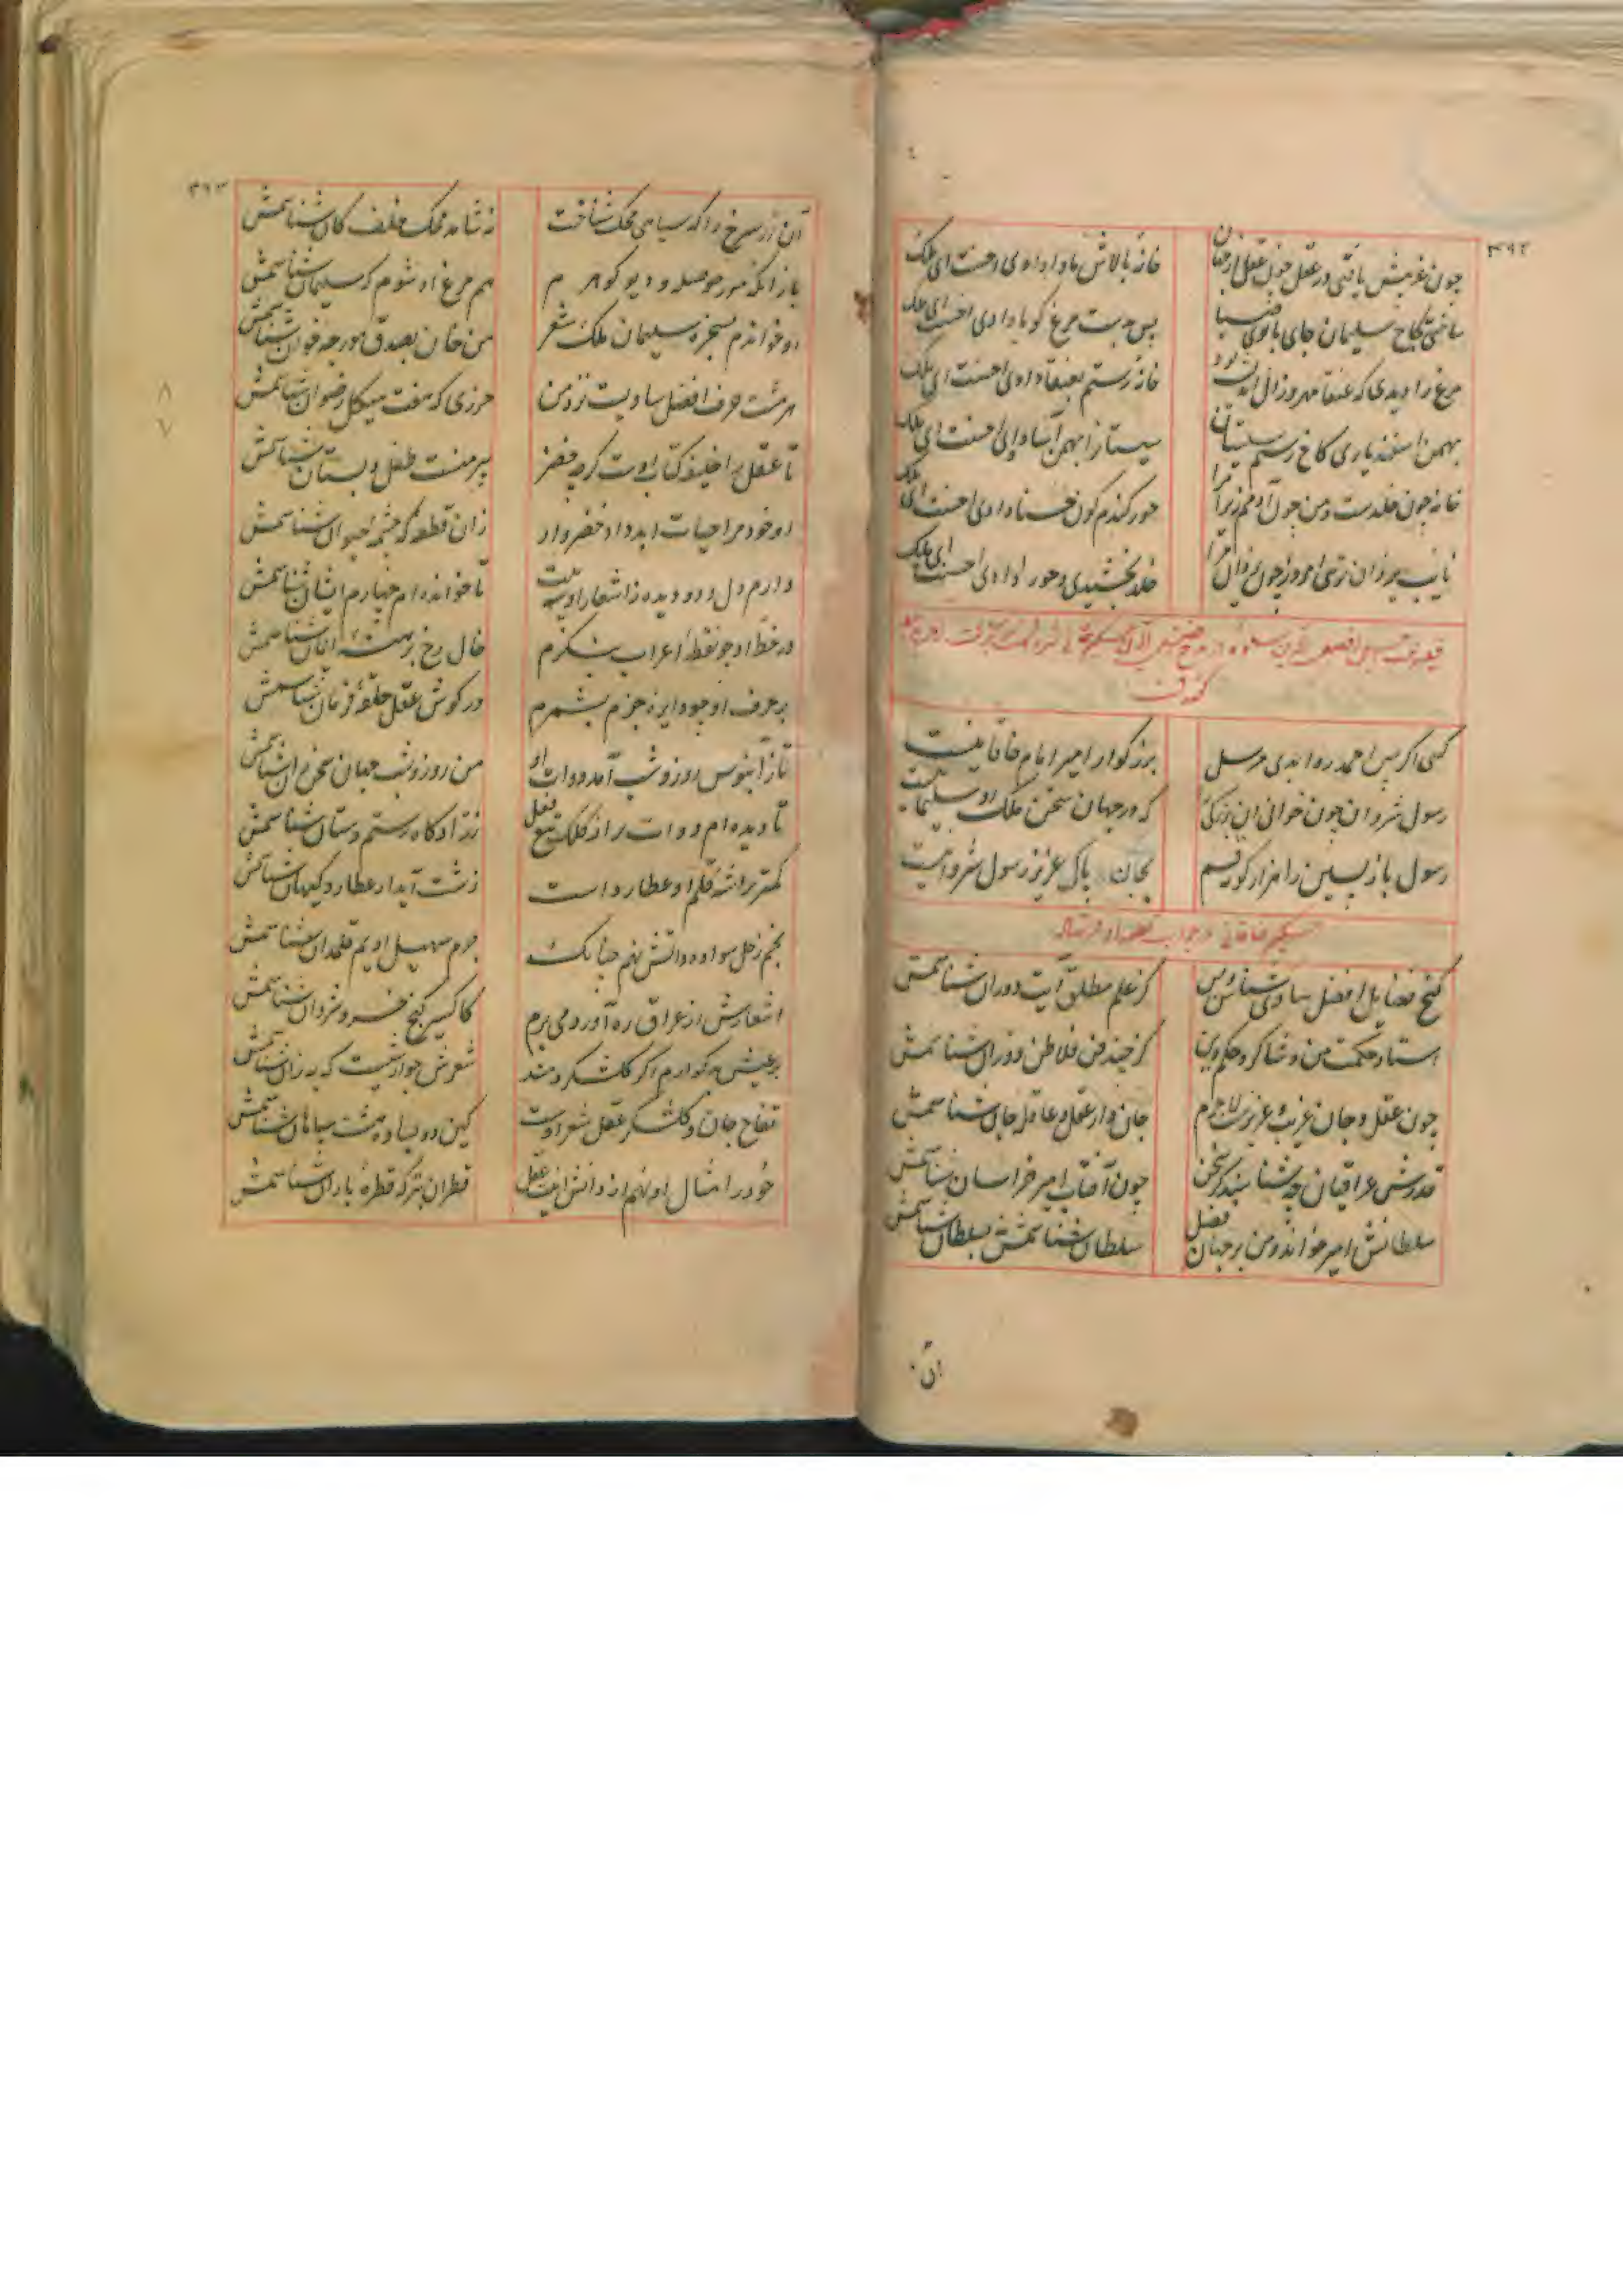 ۴۹۲
چون غریبش یافتی در عقل چون عقل از جهان خانهٔ بالاش ماوا داده‌ی احسنت ای ملک
ساختی کاخ سلیمان جای بانوی سبا پس مرغ کویا دادی احسنت ای ملک
مرغ را دیدی که عنقا مهر و زال خانهٔ رستم بعنقا دادی احسنت ای ملک
بهمن اسفندیاری کاخ رستم سیستان سیستان را بهمن آسا دادی احسنت ای ملک
خانه چون خلدست و من چون آدمم زیرا مرا حور کندم کون حسنا دادی احسنت ای ملک
نایب یزدان تویی امروز چون یزدان مرا خلد بخشیدی و حورا دادی احسنت ای ملک
قطعه افضل ساوه در مدح
گفته است
کسی اگر پس احمد روا بدی مرسل بزرگوار امیر امام خاقانیست
رسول شروان چون خوانی این بزرگی را که در جهان سخن ملک او سلیمانیست
رسول بازپسین را هزار گونه قسم بجان پاک عزیز رسول شروانیست
حکیم خاقانی در جواب قطعه او فرستاد
گنج فضایل افضل ساوی شناس و بس کز علم مطلق آیت دوران شناسمش
استاد حکمت من و شاگرد حکم دین کز چند فن فلاطن دوران شناسمش
چون عقل و جان غریب و عزیزست لاجرم جان دار عقل و عاقله جان شناسمش
قدرش عراقیان چه شناسند کز سخن چون آفتاب امیر خراسان شناسمش
سلطانش امیر خواند و من بر جهان فضل سلطان شناسمش بسلطان شناسمش
آن
۴۹۳
آن زر سرخ را که سیاهی محک شناخت نشاید محک خلف کان شناسمش
باز آنکه مور حوصله و دیو گوهرم هم مرغ او شوم که سلیمان شناسمش
او خواندم بسخره سلیمان ملک شعر من جان بصدق مورچه خوان شناسمش
هر هشت حرف افضل ساویست نزد من حرزی که هفت هیکل رضوان شناسمش
تا عقل را خلیفه کتاب اوست گرچه خضر پیر منست طفل دبستان شناسمش
او خود مرا حیات ابد داد خضروار زان قطعه که چشمه حیوان شناسمش
دارم دل و دو دیده ز اشعار او سه بیت تا خوانده‌ام چهارم ایشان شناسمش
در خط او چو نقطه اعراب بنگرم خال رخ برهنه ایمان شناسمش
بر حرف او چو دایره جزم بشمرم در گوش عقل حلقه فرمان شناسمش
تا ز آبنوس روز و شب آمد دوات او من روز و شب جهان سخن ران شناسمش
تا دیده‌ام دوات پر از کلک تیغ فعل زرادگاه رستم دستان شناسمش
کمتر تراشه قلم او عطارد است زشت آید ار عطارد کیهان شناسمش
نجم زحل سواد دواتش نهم چنانک جرم سهیل ادیم قلمدان شناسمش
اشعارش از عراق ره آورد می‌برم کاکسیر گنج خسرو شروان شناسمش
بر عیش بدگوارم اگر گلشکر دهند شعرش جوارشیست که به زان شناسمش
تفاح جان و گلشکر عقل شعر اوست کین دو بساوه هست سپاهان شناسمش
خود را مثال او نهم از دانش اینت عقل قطران بترک قطره باران شناسمش